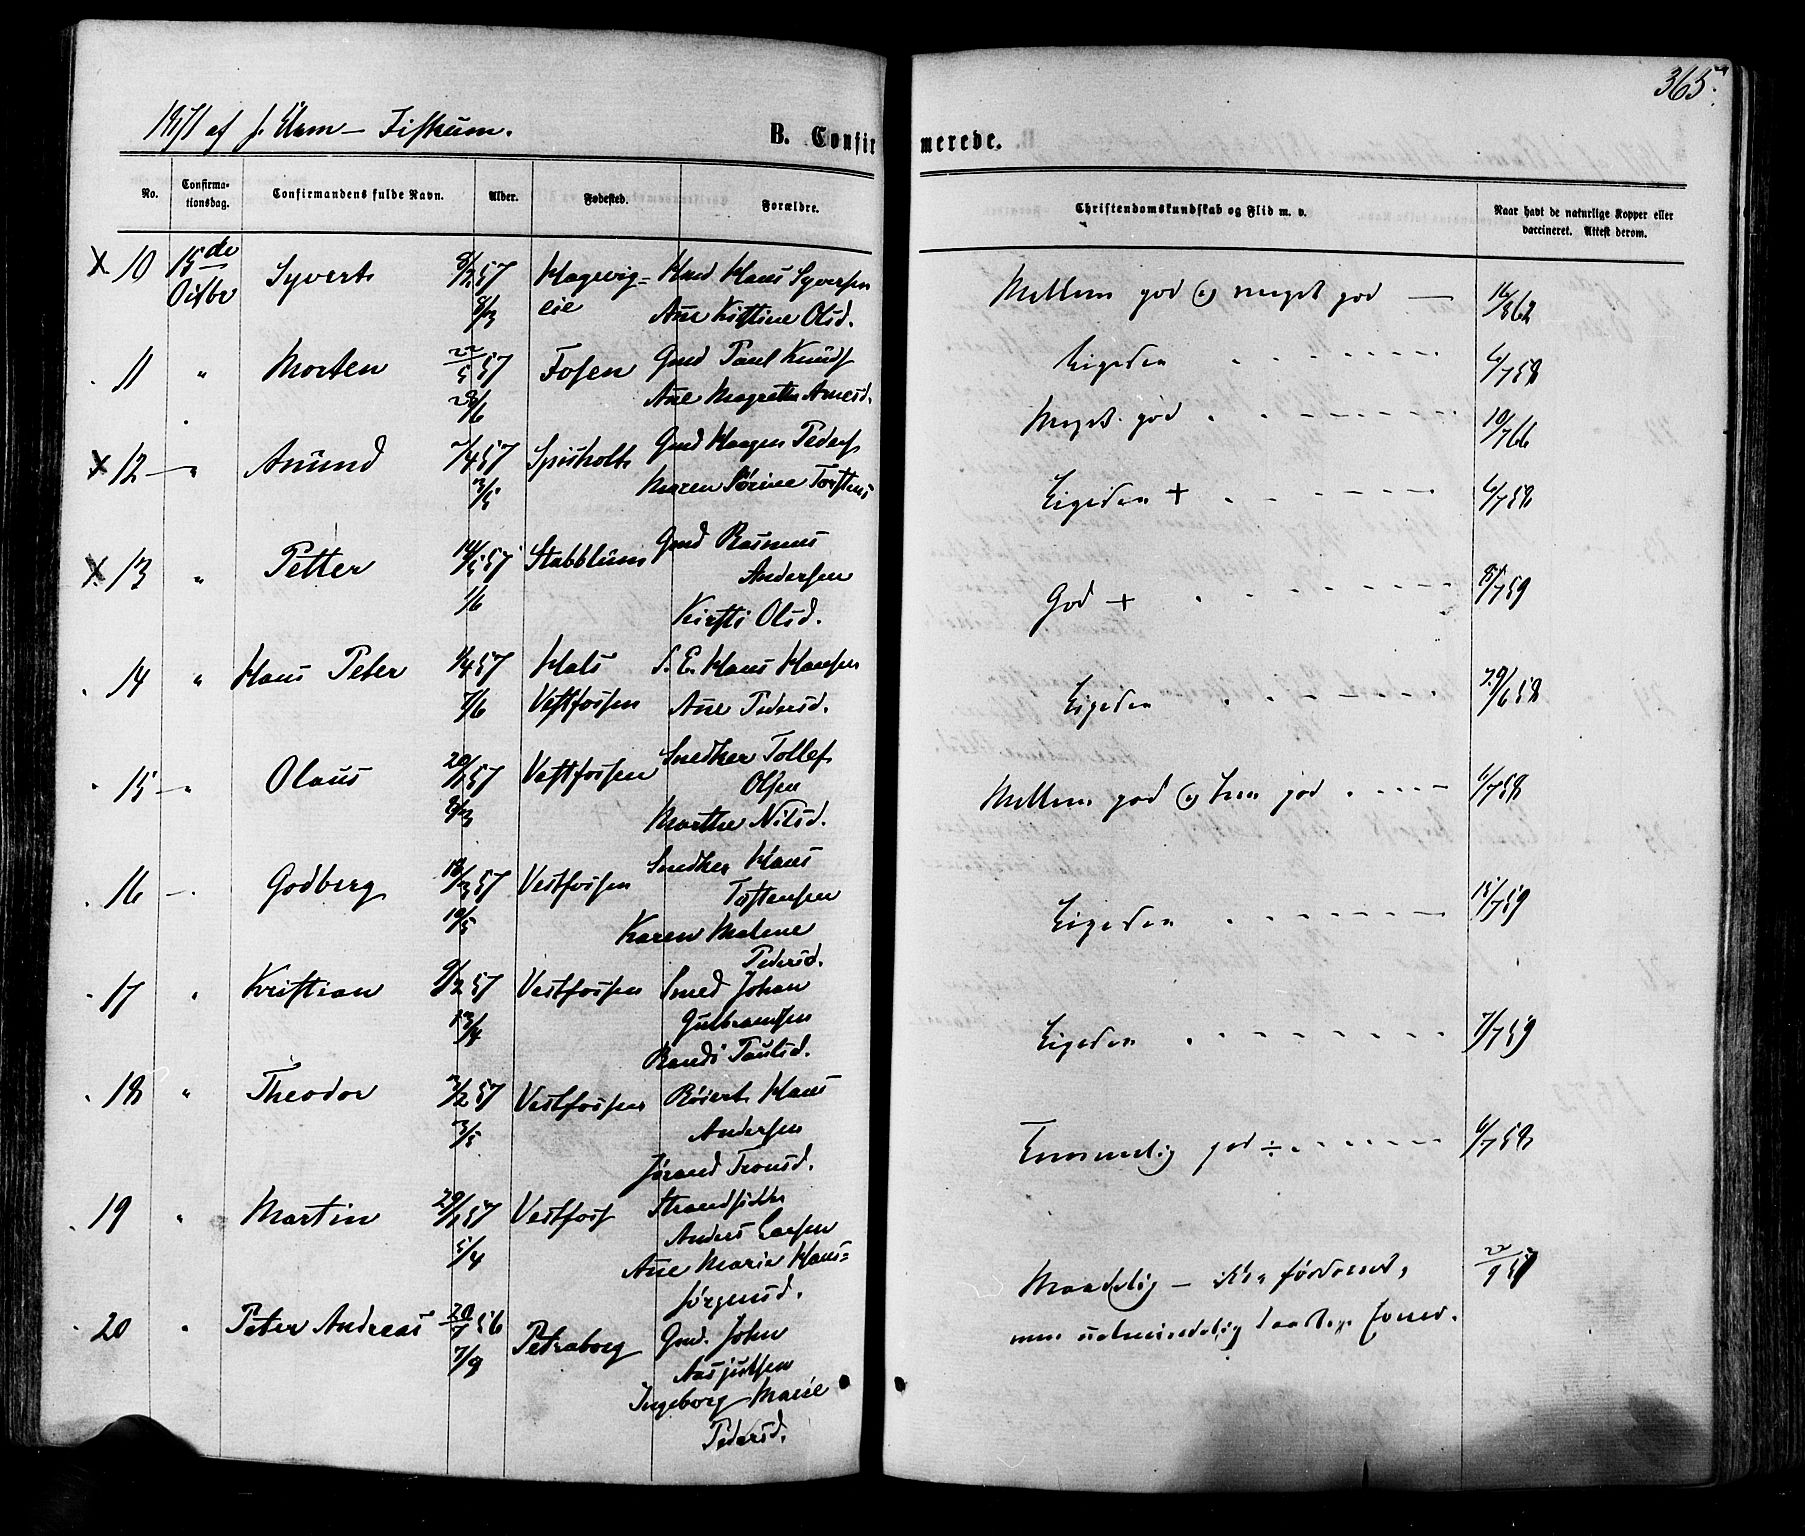 365.
1871 af J. Urm — Fiskum.
B. Confirmerede.
No.
Confirmationsdag.
Confirmandens fulde Navn.
Alder.
Fødested.
Forældre.
Christendomskundskab og Flid m. v.
Naar havt de naturlige Kopper eller vaccineret. Attest derom.
X 10 15de Octbr Syvert 8/2 57 8/3 Hagevig-eie Hmd Hans Syversen Ane Kistine Olsd. Mellem god (e) meget god — 16/8 62
11 " Morten 22/5 57 28/6 Fosen Gmd Paul Knuds Ane Magrethe Arnesd. Ligeden 6/7 58
X 12 — " Anund 7/4 57 3/5 Spisholt Gmd Haagen Peders Maren Sørine Torstens Meget god 10/7 66
X 13 " Petter 14/5 57 1/6 Stabblum Gmd Rasmus Andersen Kirsti Olsd. Ligeden + 6/7 58
14 " Hans Peter 1/4 57 7/6 Hals Vestfossen S. E. Hans Hansen Ane Pedersd. God + 8/7 59
15 — " Olaus 20/1 57 8/3 Vestfossen Snedker Tollef Olsen Marthe Nilsd. Ligeden 29/6 58
16 — . Godberg 18/3 57 10/5 Vestfossen Snedker Hans Tostensen Karen Malene Pedersd. Mellem god (e) god 6/7 58
17 " Kristian 9/2 57 13/4 Vestfossen Smed Johan Gulbrandsen Randi Paulsd. Ligeden 15/7 59
18 " Theodor 3/2 57 3/5 Vestfossen Røiert Hans Andersen Jørand Tronsd. Ligeden 7/7 59
19 " Martin 29/1 57 5/4 Vestfoss Strandsidder Anders Larsen Ane Marie Hans-Jørgensd. god ÷ 6/7 58
20 " Peter Andreas 20/7 56 7/9 Petraborg Gmd. John Aasjutsen Ingeborg Marie Pedersd. Maadelig — ualmindelig 22/9 57